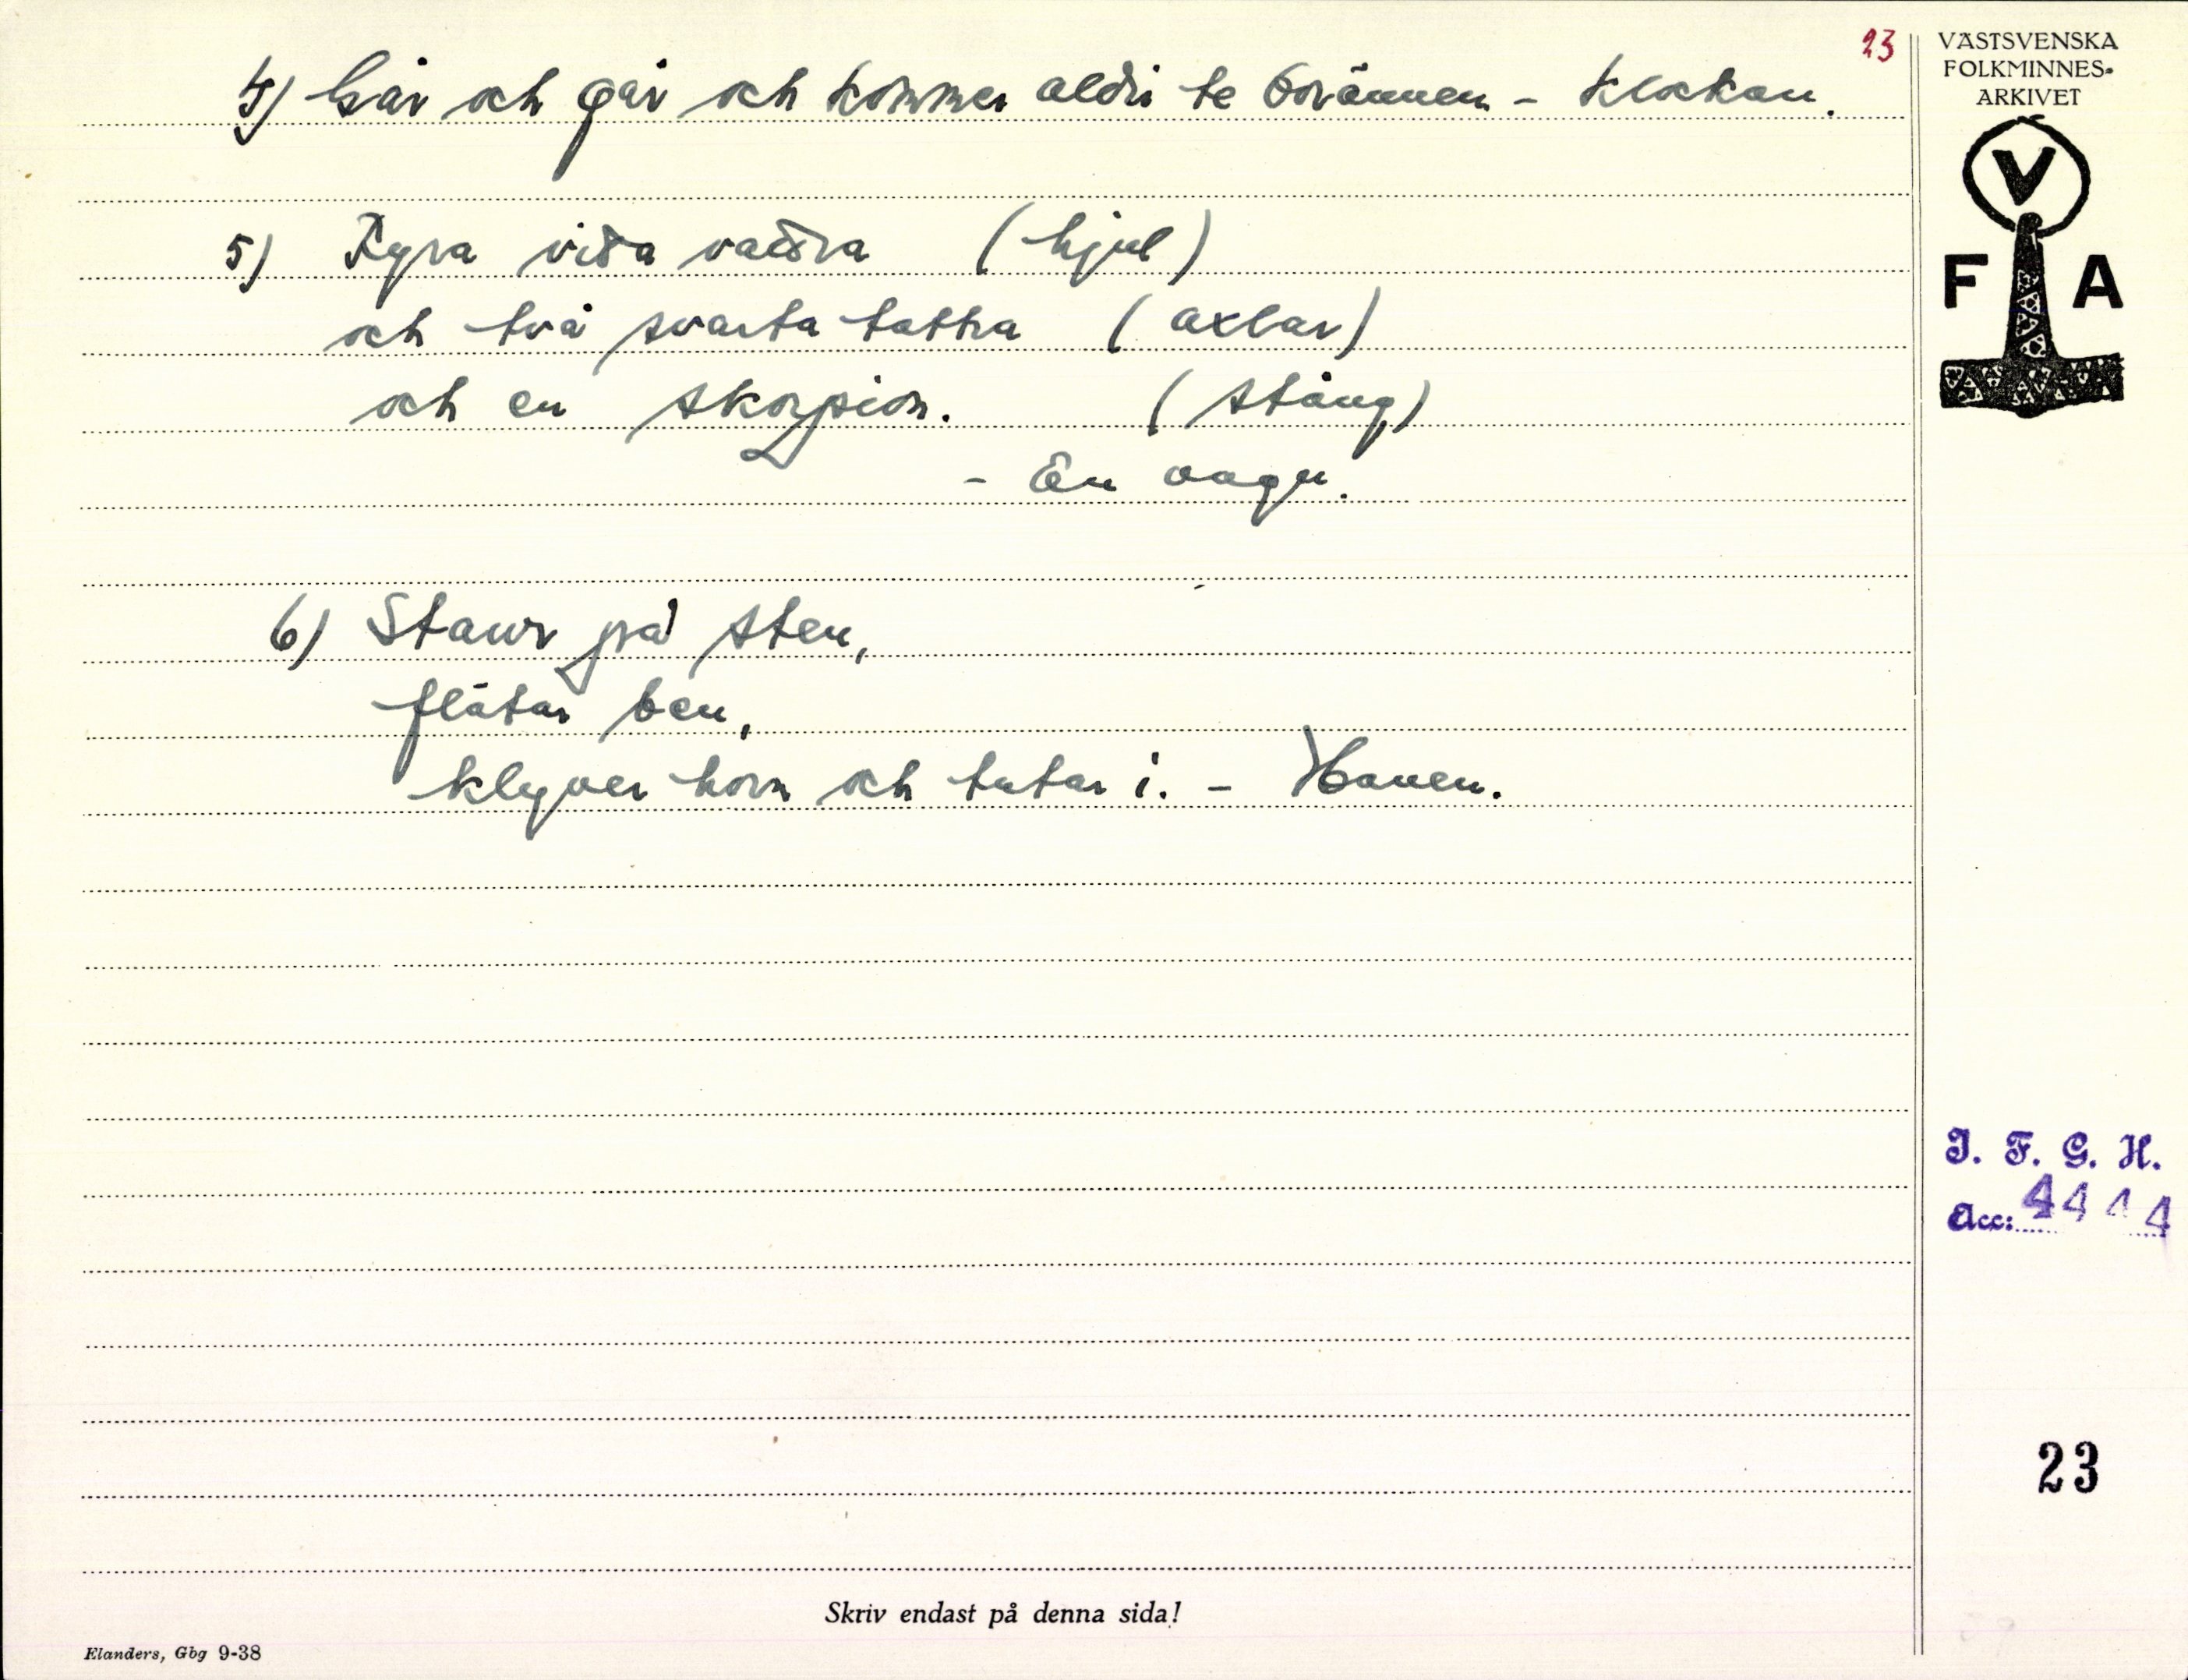 23
VÄSTSVENSKA
FOLKMINNES-
ARKIVET
4) Går och går och kommer aldri te dorännen - klockan.
V
F A
5) Fyra vida vadra (hjul)
och två svarta tattra (axlar)
och en skorpion. (stång)
- En vagn.
6) Staur på sten,
flätar ben,
klyver horn och tutar i. - Hanen.
I. F. G. H.
Acc: 4444
23
Skriv endast på denna sida!
Elanders, Gbg 9-38